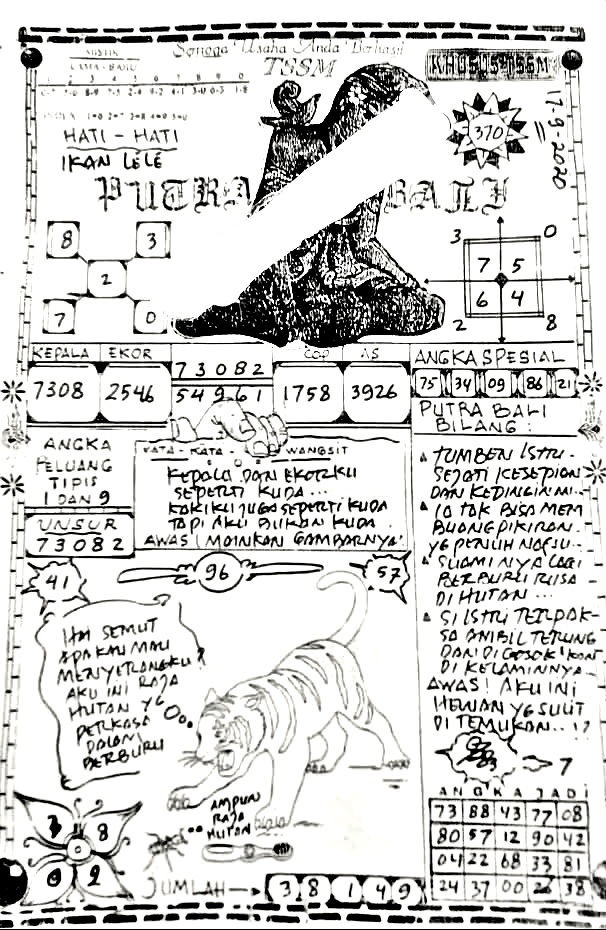 Semoga Usaha Anda Berhasil
MISTIK
LAMA - BARU
TSSM
KHUSUS TSSM
1 2 3 4 5 6 7 8 9 0
HATI - HATI
IKAN LELE
370
17-9-2020
PUTRA BALI
8 3
2
7 0
3 0
7 5
6 4
2 8
KEPALA EKOR COP AS
7308 2546 73082 1758 3926
54961
ANGKA SPESIAL
75 34 09 86 21
PUTRA BALI
BILANG :
ANGKA
PELUANG
TIPIS
1 DAN 9
UNSUR
73082
KATA - KATA WANGSIT
KEPALA DAN EKORKU
SEPERTI KUDA...
KAKIKU JUGA SEPERTI KUDA
TAPI AKU BUKAN KUDA
AWAS! MAINKAN GAMBARNYA!
TUMBEN ISTRI
SEJATI KESEPIAN
DAN KEDINGINAN..
IA TAK BISA MEM
BUANG PIKIRAN
YG PENUH NAFSU..
SUAMINYA LAGI
BERBURU RUSA
DI HUTAN...
SI ISTRI TERPAK-
SA AMBIL TERUNG
DAN DI GOSOK'KAN
DI KELAMINNYA..
AWAS! AKU INI
HEWAN YG SULIT
DI TEMUKAN..!?
41 96 57
HAI SEMUT
APAKAH MAU
MENYERANGKU?
AKU INI RAJA
HUTAN YG
PERKASA
DALAM
BERBURU
AMPUN
RAJA
HUTAN
7
ANGKA JADI
73 88 43 77 08
80 57 12 90 42
04 22 68 33 81
24 37 00 26 38
8
0 2
JUMLAH 3 8 1 4 9